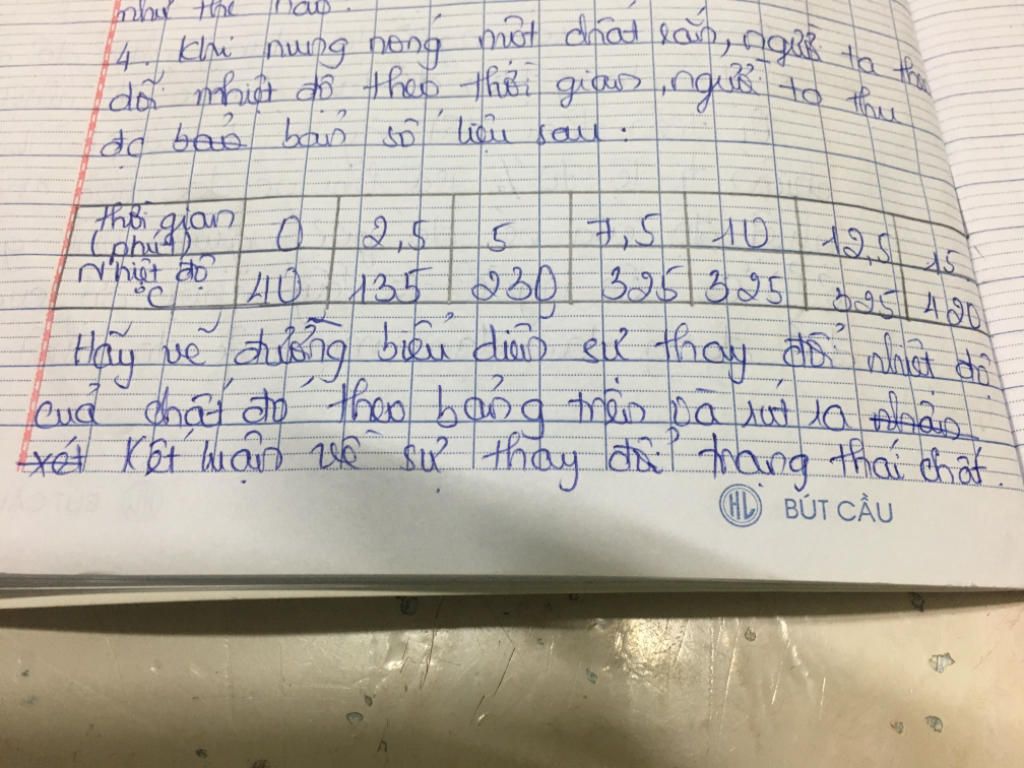 như thế nào.
4. Khi nung nóng một chất rắn, người ta theo
dõi nhiệt độ theo thời gian, người ta thu
đc bảo bản số liệu sau:
thời gian (phút) 0 2,5 5 7,5 10 12,5 15
Nhiệt độ °C 40 135 230 325 325 325 420
Hãy vẽ đường biểu diễn sự thay đổi nhiệt độ
cuả chất đó theo bảng trên và rút ra nhận
xét kết luận về sự thay đổi trạng thái chất.
HL BÚT CẦU